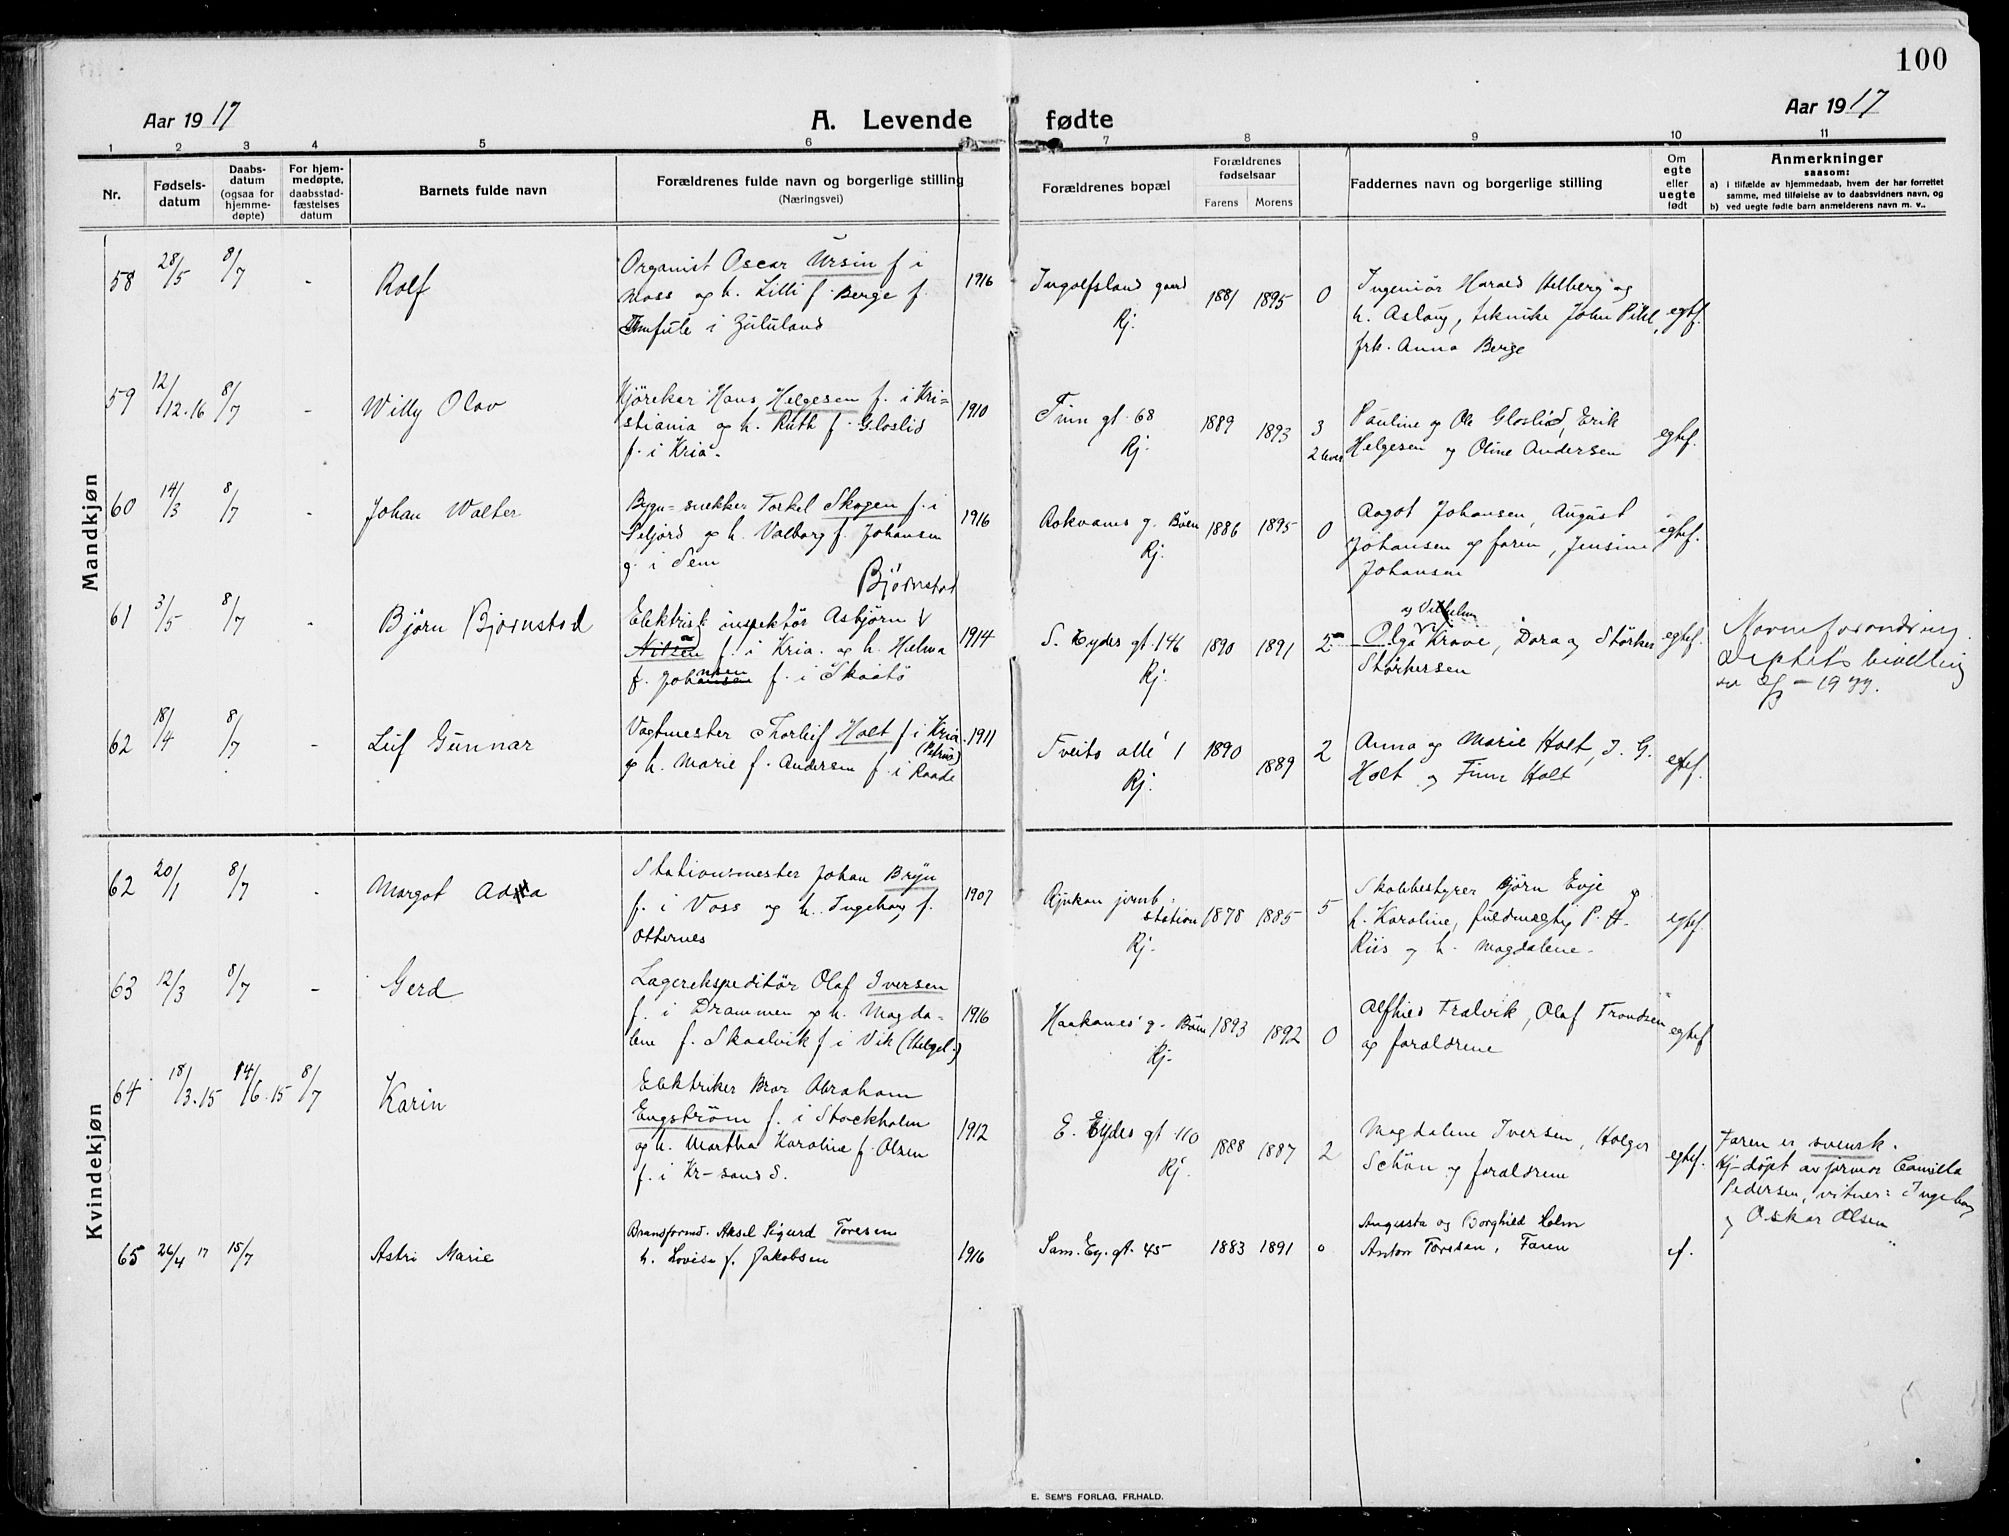 100
Aar 1917
A. Levende fødte
Aar 1917
1 2 3 4 5 6 7 8 9 10 11
Nr.
Fødsels-
datum
Daabs-
datum
(ogsaa for
hjemme-
døpte)
For hjem-
medøpte,
daabsstad-
fæstelses
datum
Barnets fulde navn
Forældrenes fulde navn og borgerlige stilling
(Næringsvei)
Forældrenes bopæl
Forældrenes
fødselsaar
Farens Morens
Faddernes navn og borgerlige stilling
Om
egte
eller
uegte
født
Anmerkninger
saasom:
a) i tilfælde av hjemmedaab, hvem der har forrettet
samme, med tilføielse av to daabsvidners navn, og
b) ved uegte fødte barn anmelderens navn m. v..
Mandkjøn
58 28/5 8/7 - Rolf
Organist Oscar Ursin f i
Moss og h. Lilli f. Berge f.
i Zululand
1916
Ingolfsland gaard
Rj.
1881 1895 0
Ingeniør Harald Helberg og
h. Aslaug, tekniker John Pihl,
frk. Anna Berge
egtf.
59 12/12.16 8/7 - Willy Olav
Kjøreker Hans Helgesen f. i Kri-
stiania og h. Ruth f. Gloslid
f. i Kria.
1910
Finn gt. 68
Rj.
1889 1893 3
2 lever
Pauline og Ole Gloslid, Erik
Helgesen og Oline Andersen
egtef.
60 14/3 8/7 - Johan Walter
Bygn.snekker Torkel Skogen f. i
Seljord og h. Valborg f. Johansen
g. i Sem
1916
Rokvams g. Bøen
Rj.
1886 1895 0
Aagot Johansen, August
Johansen og faren, Jensine
Johansen
egtef.
61 3/5 8/7 - Bjørn Bjørnstad
Bjørnstad
Elektrisk inspektør Asbjørn
Nilsen f. i Kria. og h. Helma
f. Johansen f. i Skaatø
1914
S. Eydes gt. 146
Rj.
1890 1891 2
og Vilhelm
Olga Krave, Dora og Størker
Størkersen
egtef.
Navneforandring
Deptets bevilling
62 18/4 8/7 - Leif Gunnar
Vagtmester Thorleif Holt f i Kria.
(Petrus)
og h. Marie f. Andersen f. i Raade
1911
Tveito allé 1
Rj.
1890 1889 2
Anna og Marie Holt, J. G.
Holt og Finn Holt
egtef.
Kvindekjøn
62 20/1 8/7 - Margot
Stationsmester Johan Bryn
f. i Voss og h. Ingeborg f.
Otternes
1907
Rjukan jernb.
station
Rj.
1878 1885 5
Skobbestyrer Bjørn Evje og
h. Karoline, fuldmægtig P. H.
Riis og h. Magdalene.
egtef.
63 12/3 8/7 - Gerd
Lagerekspeditør Olaf Iversen
f. i Drammen og h. Magda-
lene f. Skaalvik f i Vik (Helgel.)
1916
Haakanes g. Bøen
Rj.
1893 1892 0
Alfhild Frelvik, Olaf Trondsen
og forældrene
egtef
64 18/3.15 14/6.15 8/7 Karin
Elektriker Bror Abraham
Engstrøm f. i Stockholm
og h. Martha Karoline f. Olsen
f. i Kr-sand S.
1912
E. Eydes gt. 110
Rj.
1888 1887 2
Magdalene Iversen, Holger
Schøn og forældrene
egtef.
Faren er svensk.
Hj-døpt av jormor Camilla
Pedersen, vitner: Ingeborg
og Oskar Olsen
65 26/4 17 15/7 Astri Marie
Bransformd. Aksel Sigurd Toresen
h. Lovise f. Jakobsen
1916
Sam. Ey. gt. 45
1883 1891 0
Augusta og Borghild Holm
Anton Toresen, Faren
ef.
E. SEM'S FORLAG, FR.HALD.